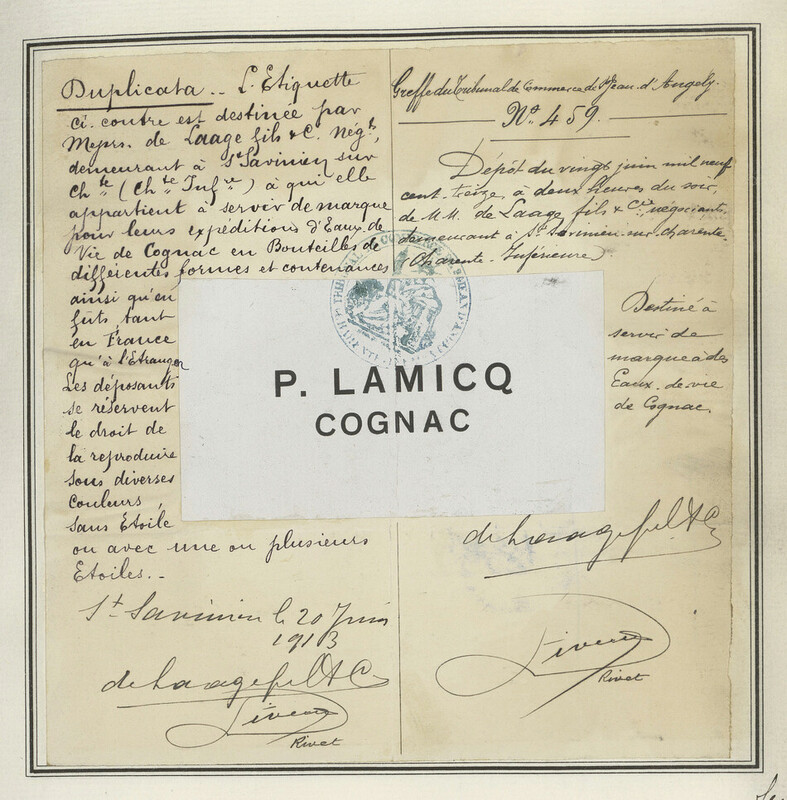 Duplicata.. L'Etiquette
ci-contre est destinée par
Messrs. de Laage fils & C. Négts,
demeurant à St Savinien sur
Chte (Chte Infre) à qui elle
appartient à servir de marque
pour leurs expéditions d'Eaux de
Vie de Cognac en Bouteilles de
différentes formes et contenances
ainsi qu'en
fûts, tant
en France
qu'à l'Etranger
Les déposants
se réservent
le droit de
la reproduire
sous diverses
couleurs,
sans Etoile
ou avec une ou plusieurs
Etoiles..
St Savinien le 20 Juin
1913
de Laage fils & C
Rivet
Greffe du Tribunal de Commerce de St Jean d'Angely.
No. 459.
Dépôt du vingt juin mil neuf
cent treize, à deux heures du soir,
de M.M. de Laage fils & Cie négociants
demeurant à St Savinien sur Charente
(Charente-Inférieure)
Destiné à
servir de
marque à des
Eaux-de-vie
de Cognac.
P. LAMICQ
COGNAC
de Laage fils & C
Rivet